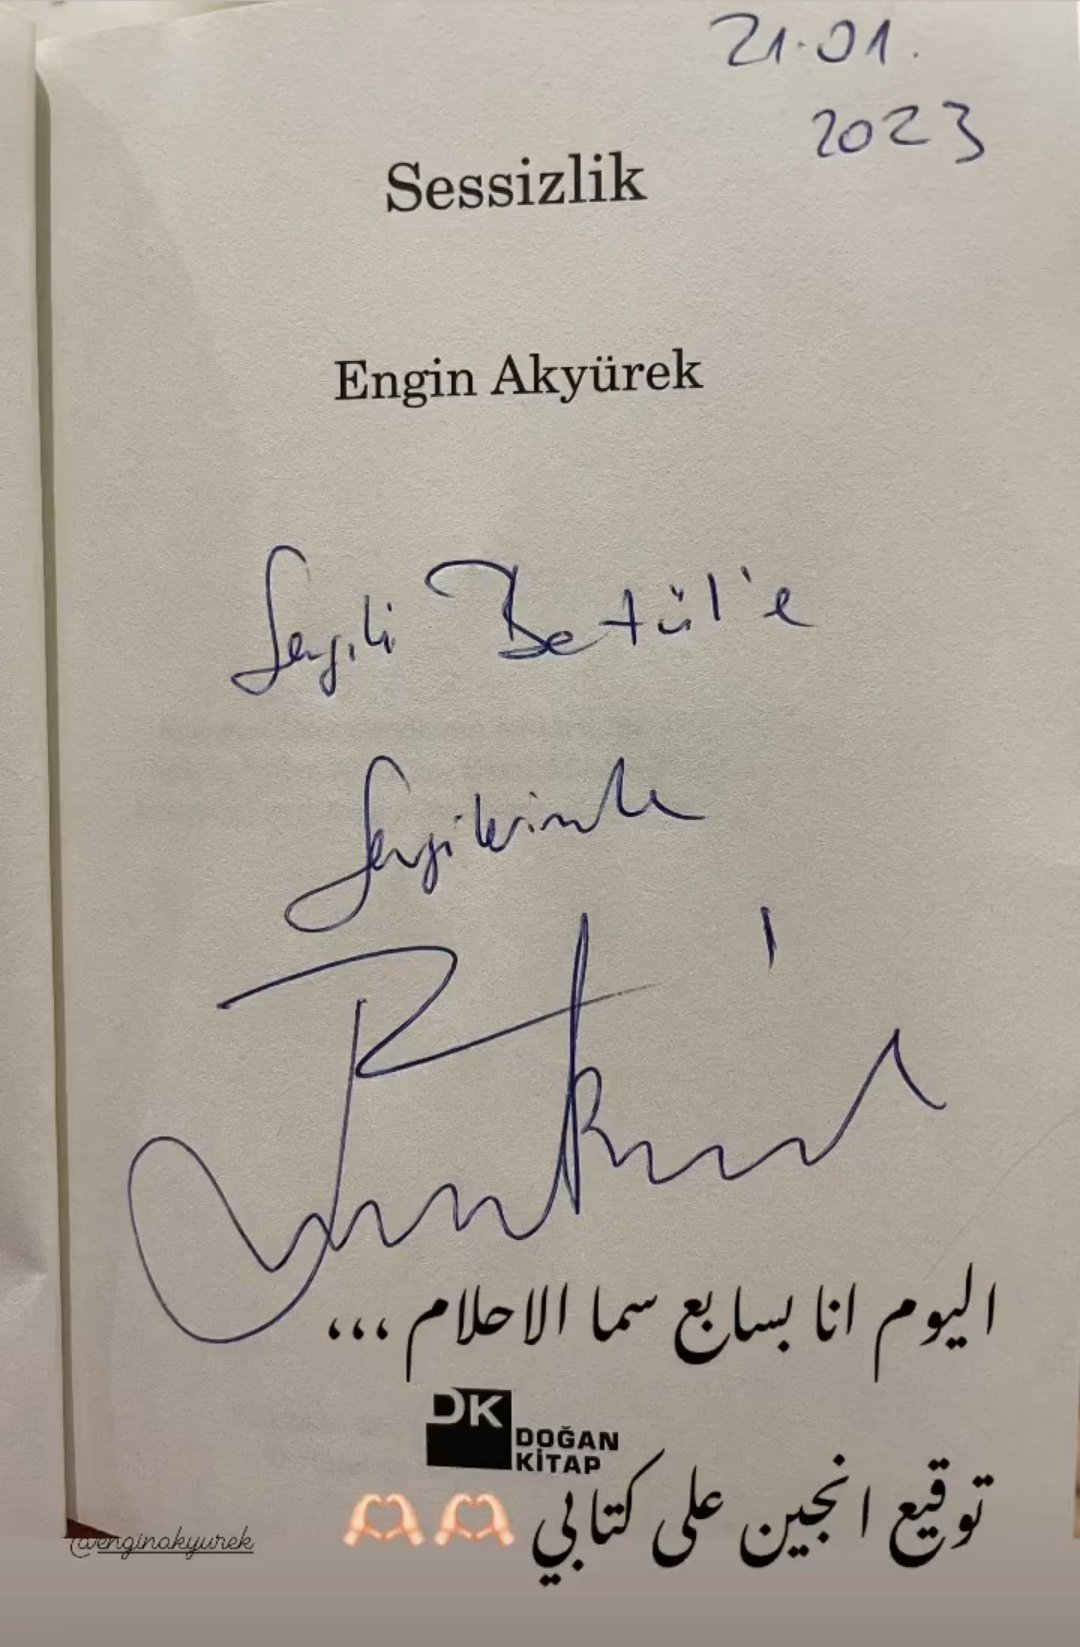 21.01.
2023
Sessizlik
Engin Akyürek
Sevgili Betül'e
Sevgilerimle
اليوم انا بسابع سما الاحلام ...
DK
DOĞAN
KİTAP
توقيع انجين على كتابي 🫶🏻🫶🏻
@enginakyurek